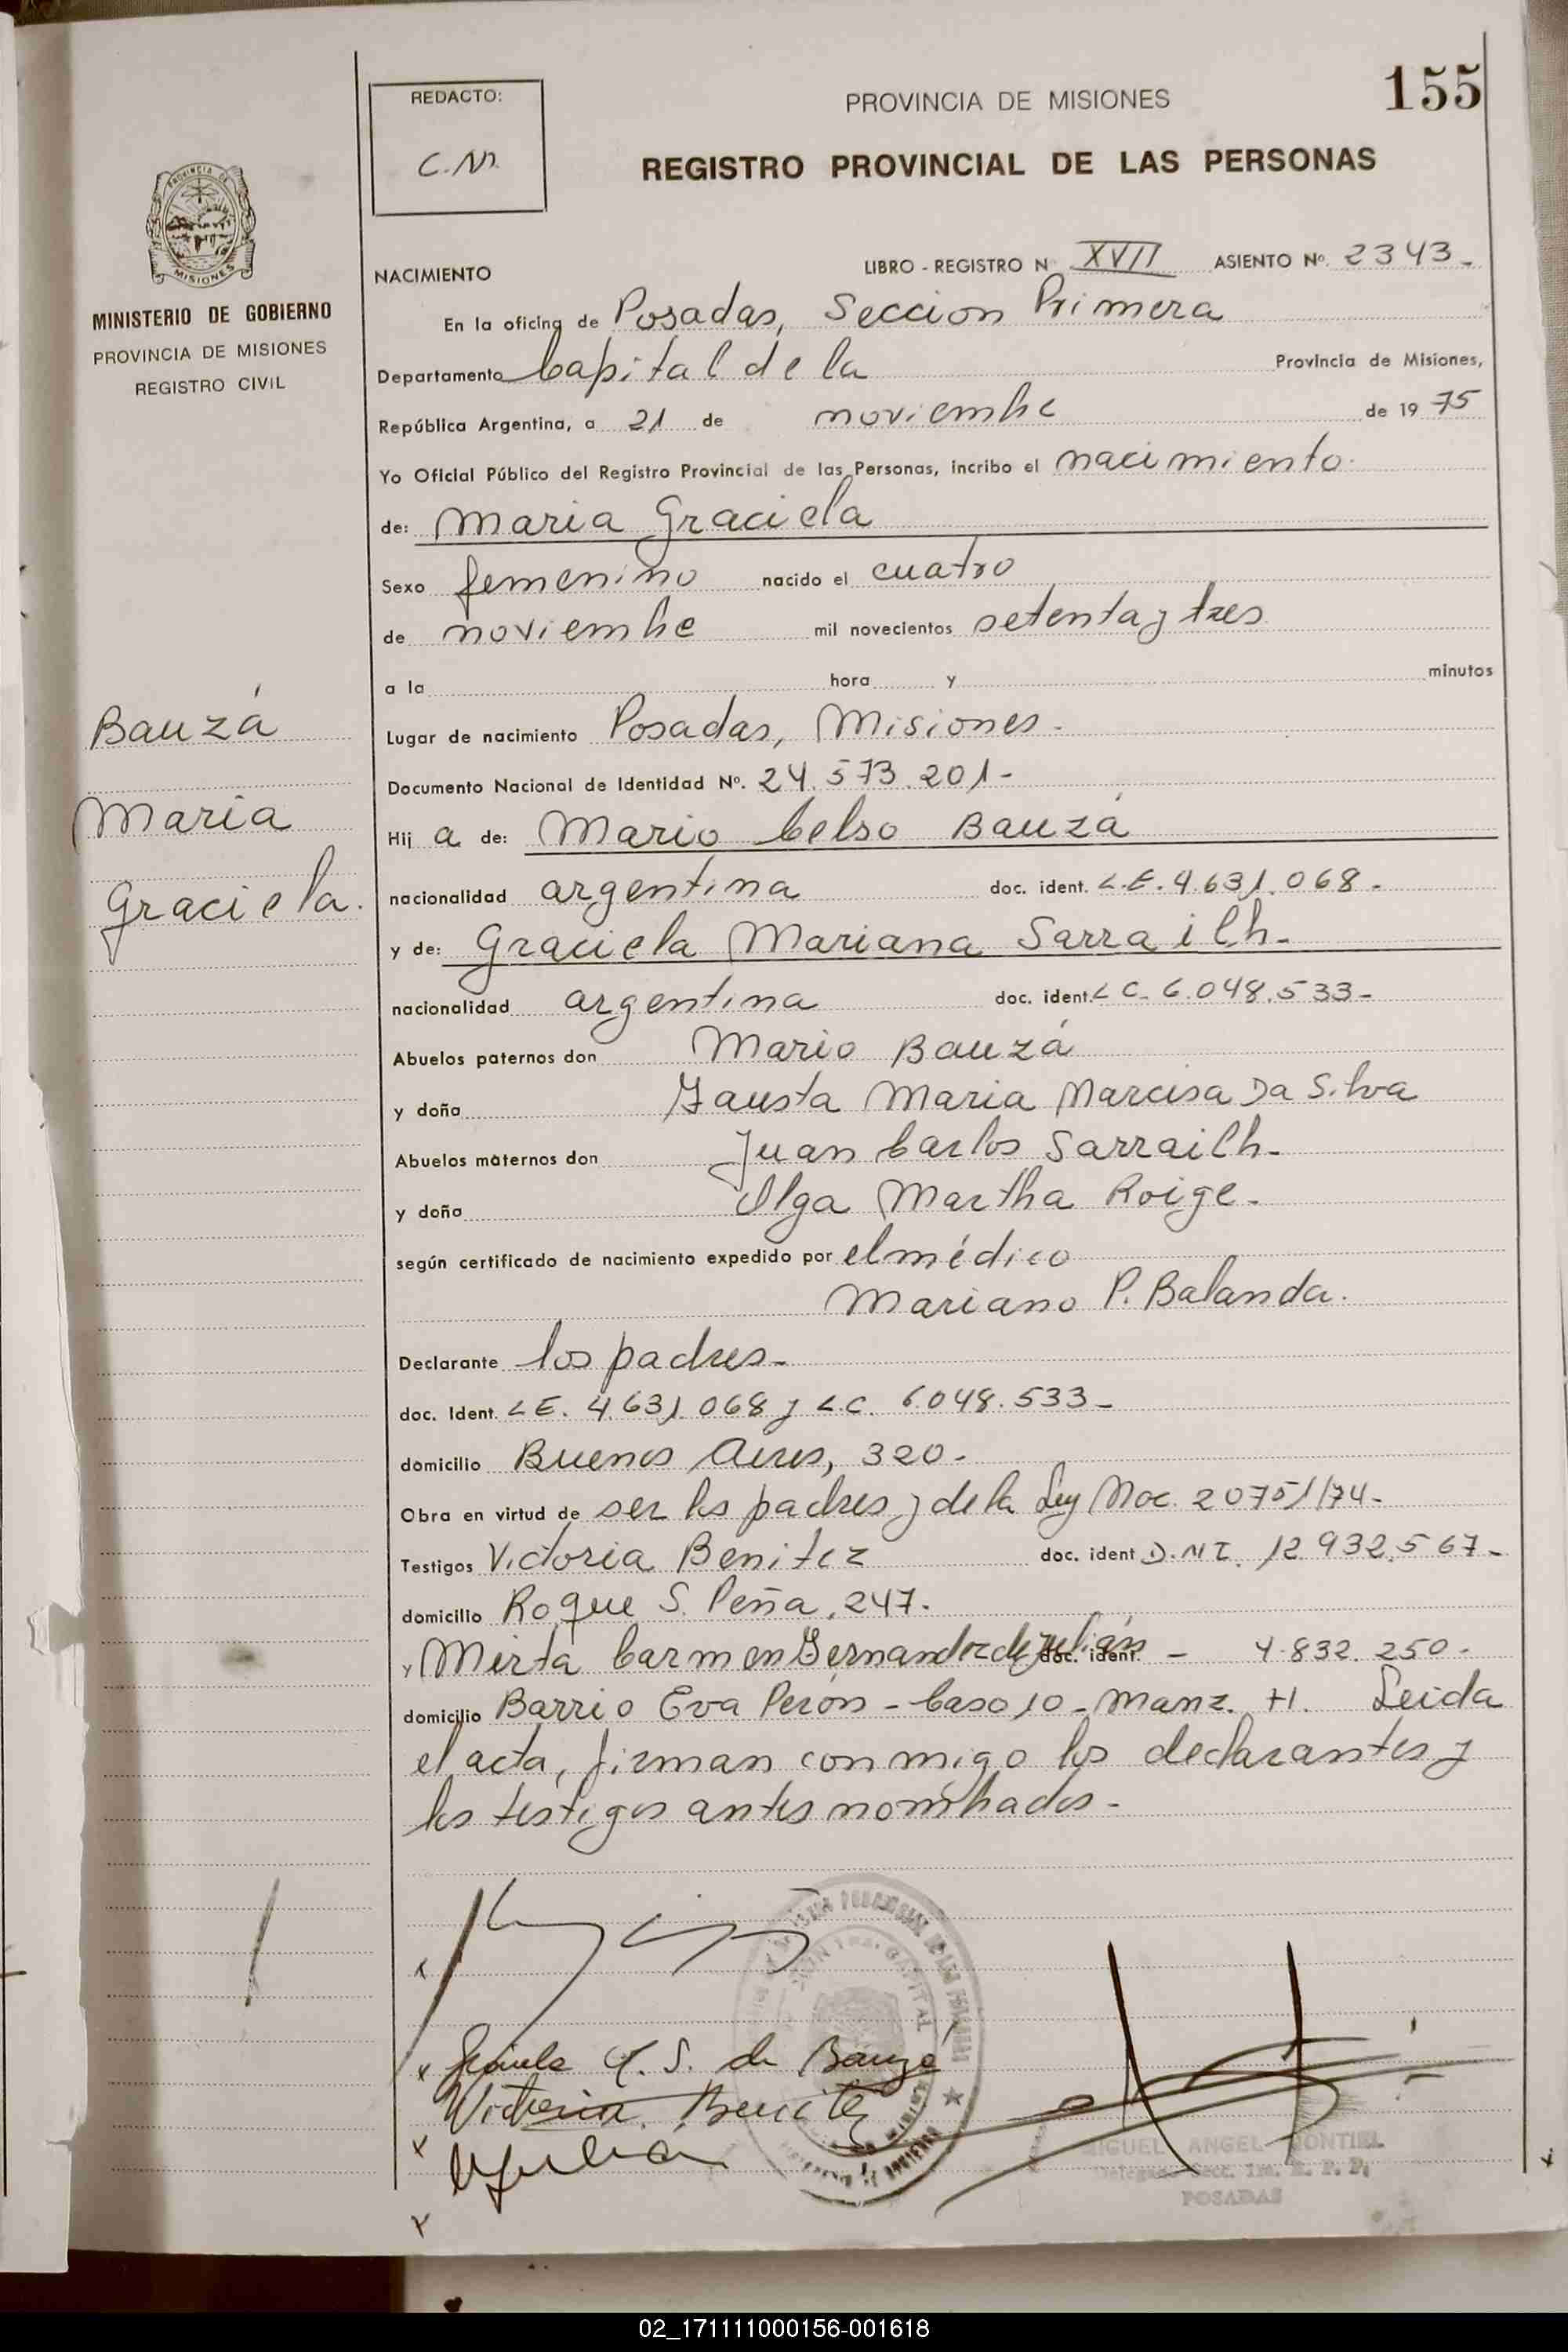 155
REDACTO:
C.M.
PROVINCIA DE MISIONES
REGISTRO PROVINCIAL DE LAS PERSONAS
PROVINCIA DE
MISIONES
MINISTERIO DE GOBIERNO
PROVINCIA DE MISIONES
REGISTRO CIVIL
NACIMIENTO
LIBRO - REGISTRO N XVII ASIENTO Nº. 2343-
En la oficina de Posadas, Seccion Primera
Departamento Capital de la Provincia de Misiones,
República Argentina, a 21 de noviembre de 19 75
Yo Oficial Público del Registro Provincial de las Personas, incribo el nacimiento
de: Maria Graciela
Sexo femenino nacido el cuatro
de noviembre mil novecientos setenta y tres
a la hora y minutos
Bauzá
Maria
Graciela.
Lugar de nacimiento Posadas, Misiones-
Documento Nacional de Identidad Nº. 24.573.201-
Hij a de: Mario Celso Bauzá
nacionalidad argentina doc. ident. L.E. 4.631.068-
y de: Graciela Mariana Sarrailh-
nacionalidad argentina doc. ident. L C. 6.048.533-
Abuelos paternos don Mario Bauzá
y doña Fausta Maria Marcisa Da Silva
Abuelos maternos don Juan Carlos Sarrailh-
y doña Olga Martha Roige-
según certificado de nacimiento expedido por el médico
Mariano P. Balanda.
Declarante los padres-
doc. Ident. L E. 4.631.068 y L.C. 6.048.533-
domicilio Buenos Aires, 320-
Obra en virtud de ser los padres y de la Ley Nac. 20751/74-
Testigos Victoria Benitez doc. ident D.N.I. 12.932.567-
domicilio Roque S. Peña, 247.
y Mirta Carmen Fernandez de Julián doc. ident. - 4.832.250-
domicilio Barrio Eva Perón - Casa 10 - Manz. H. Leida
el acta, firman conmigo los declarantes y
los testigos antes nombrados-
x
x Graciela M. S. de Bauzá
Victoria Benitez
x
x
MIGUEL ANGEL MONTIEL
Delegado Secc. 1ra. R. P. P.
POSADAS
02_171111000156-001618